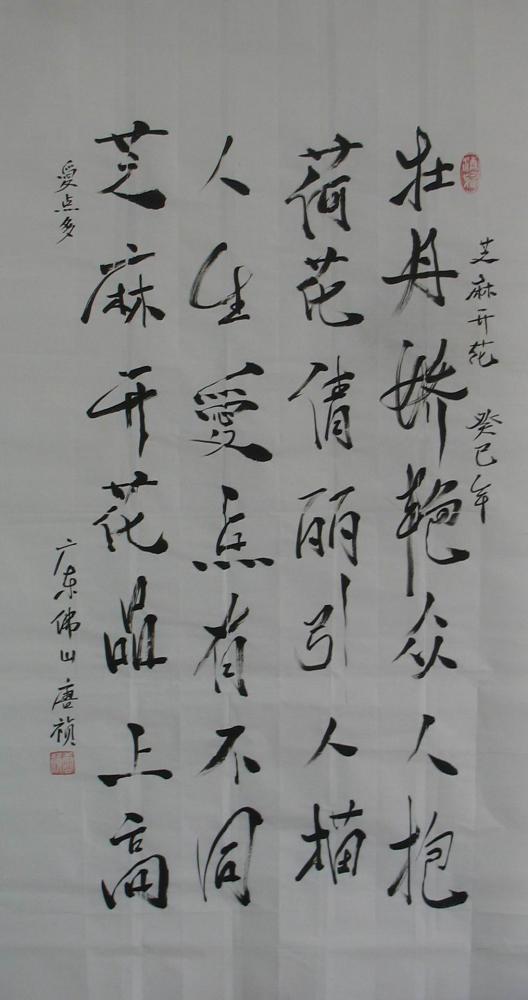 芝麻开花 癸巳年
牡丹娇艳众人抱
荷花倩丽引人描
人生愛点有不同
芝麻开花晶上高
愛点多
广东佛山唐祯